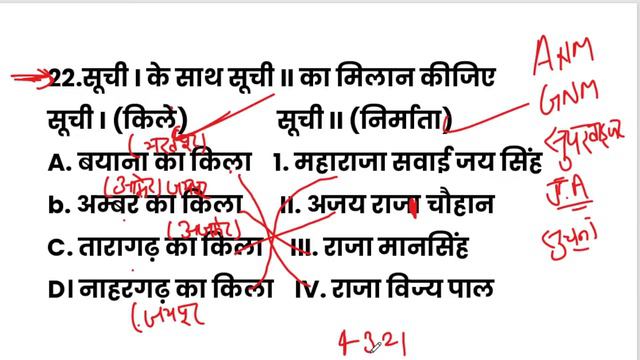 22.सूची I के साथ सूची II का मिलान कीजिए
सूची I (किले) सूची II (निर्माता)
A. बयाना का किला 1. महाराजा सवाई जय सिंह
b. अम्बर का किला II. अजय राजा चौहान
C. तारागढ़ का किला III. राजा मानसिंह
D। नाहरगढ़ का किला IV. राजा विज्य पाल
(जयपुर
4 3 2 1
ANM
GNM
सुपरवाइजर
J.A
सूचना